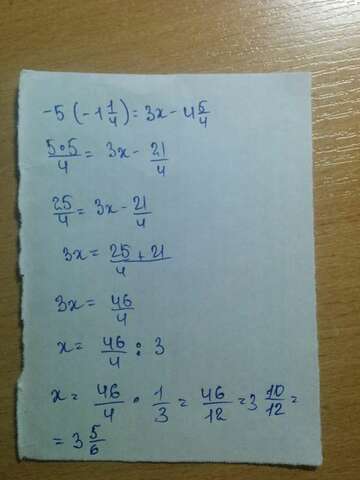 -5 (-1 1/4) = 3x - 4 5/4
5•5/4 = 3x - 21/4
25/4 = 3x - 21/4
3x = 25 + 21/4
3x = 46/4
x = 46/4 : 3
x = 46/4 • 1/3 = 46/12 = 3 10/12 =
= 3 5/6